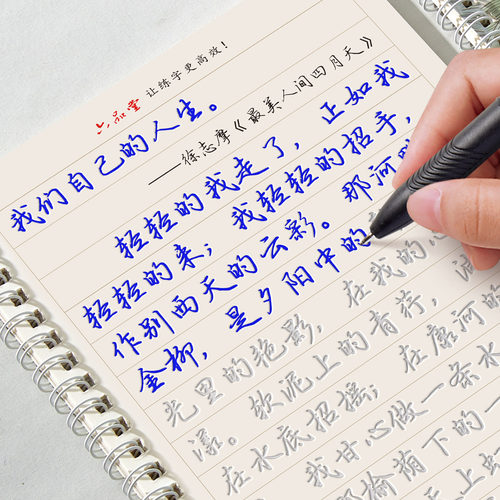 六品堂 让练字更高效!
我们自己的人生。
——徐志摩《最美人间四月天》
轻轻的我走了，正如我
轻轻的来；我轻轻的招手，
作别西天的云彩。那河
金柳，是夕阳中的
光里的艳影，在我的心
漾。软泥上的青荇，油
在水底招摇；在康河的
我甘心做一条水
那榆荫下的一